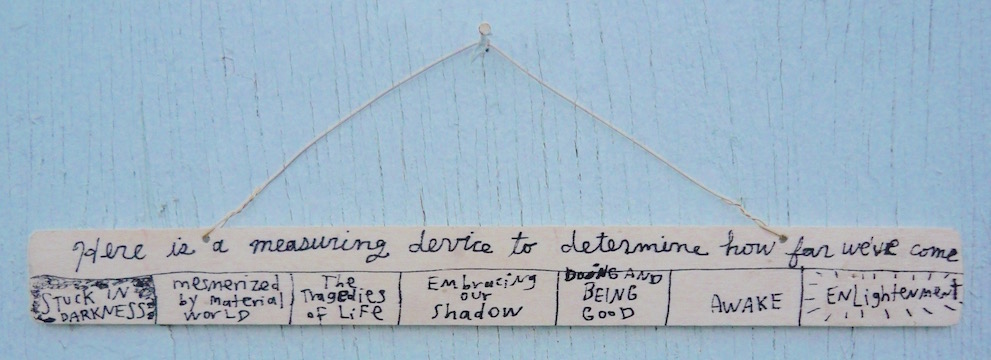 Here is a measuring device to determine how far we've come
STUCK IN
DARKNESS
mesmerized
by material
WORLD
The
Tragedies
of LiFe
Embracing
our
Shadow
DOING AND
BEING
GOOD
AWAKE
ENLightenment